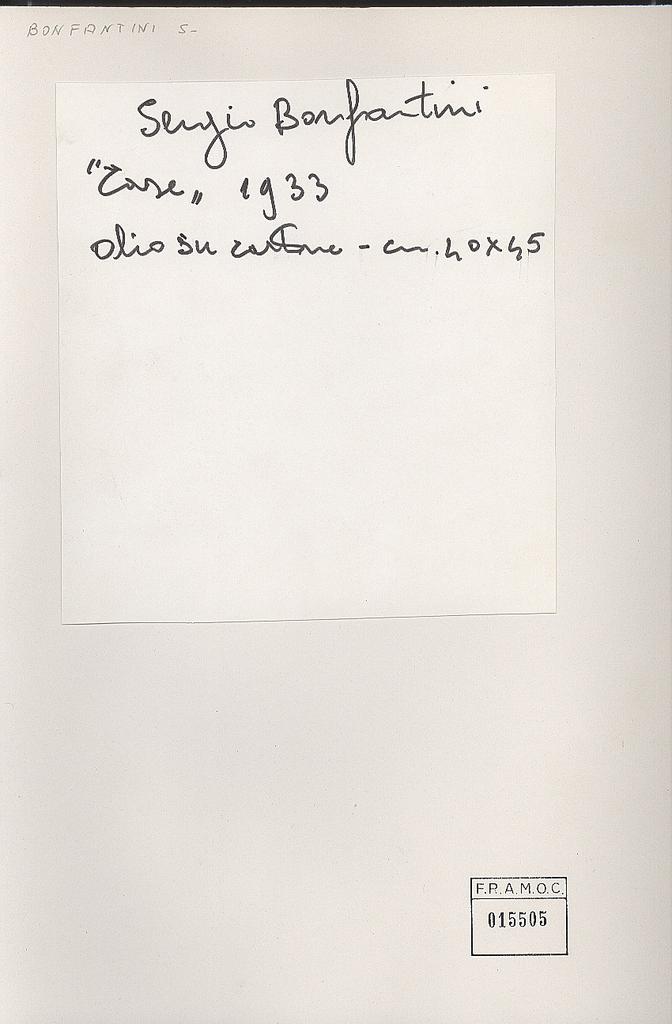 BONFANTINI S-
Sergio Bonfantini
"Case„ 1933
olio su cartone - cm. 40x45
F.P.A.M.O.C.
015505